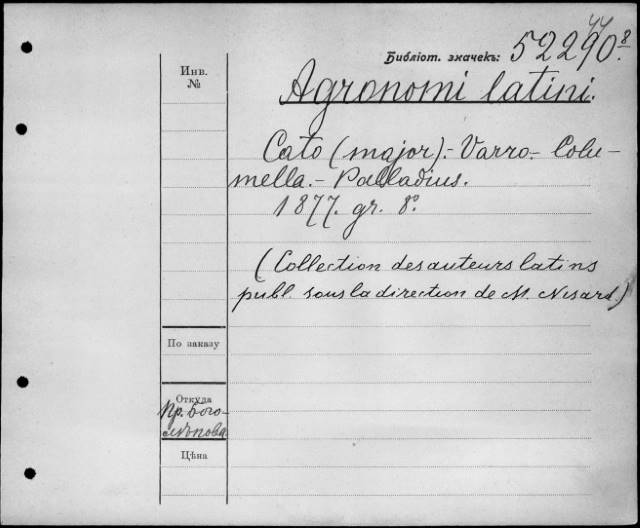 44
Библіот. значекъ: 52290.8
Инв.
№
Agronomi latini.
Cato (major).- Varro.- Colu-
mella.- Palladius.
1877. gr. 8°.
(Collection des auteurs latins
publ. sous la direction de M. Nisard.)
По заказу
Откуда
Пр. Бого-
лѣпова
Цѣна